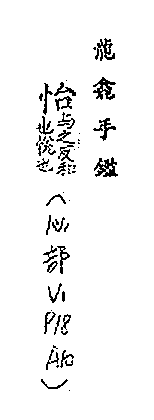 龍龕手鑑
怡与之反和也悅也(心部V1P18A10)